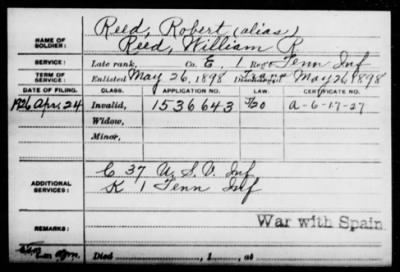 Reed, Robert (alias)
NAME OF SOLDIER: Reed, William R
SERVICE: Late rank, Co. E, 1 Reg't Tenn Inf
TERM OF SERVICE: Enlisted May 26, 1898 May 26 1898
DATE OF FILING. CLASS. APPLICATION NO. LAW. CERTIFICATE NO.
1926 Apr. 24 Invalid, 1536643 A-6-17-27
Widow,
Minor,
C 37 U.S.V. Inf
ADDITIONAL SERVICES: K 1 Tenn Inf
War with Spain
REMARKS:
Died , 1 , at